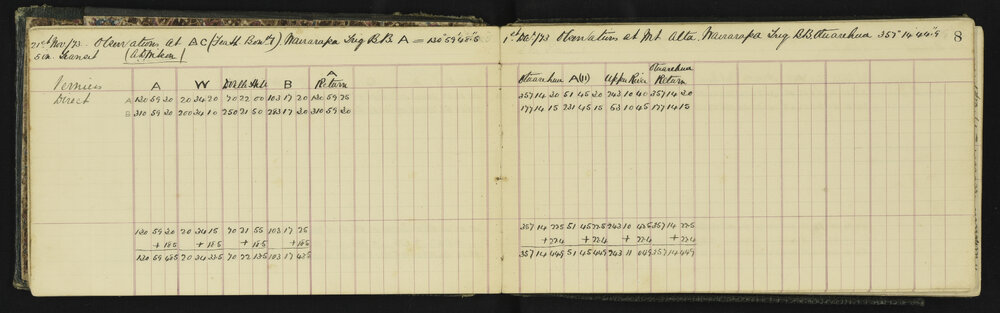 21st Nov/73. Observations at AC (Tenth Bony) Wairarapa Trig B.B. A = 130° 59' 48"5
5 in. Transit (A.D. Wilson)
Vernier A W B A Return
Direct A 130 59 20 20 34 20 70 22 00 103 17 20 130 59 25
B 310 59 20 200 34 10 250 21 50 283 17 30 310 59 20
130 59 20 20 34 15 70 21 55 103 17 25
+ 18.5 + 18.5 + 18.5 + 18.5
130 59 48.5 20 34 33.5 70 22 13.5 103 17 43.5
1st Dec/73 Observations at Mt Alta. Wairarapa Trig B.B. Otuarehua 357° 14' 44"9 8
Otuarehua A(11) Upper River Otuarehua Return
357 14 20 51 45 20 243 10 40 357 14 20
177 14 15 231 45 15 63 10 45 177 14 15
357 14 22.5 51 45 22.5 243 10 42.5 357 14 22.5
+ 22.4 + 22.4 + 22.4 + 22.4
357 14 44.9 51 45 44.9 243 11 04.9 357 14 44.9